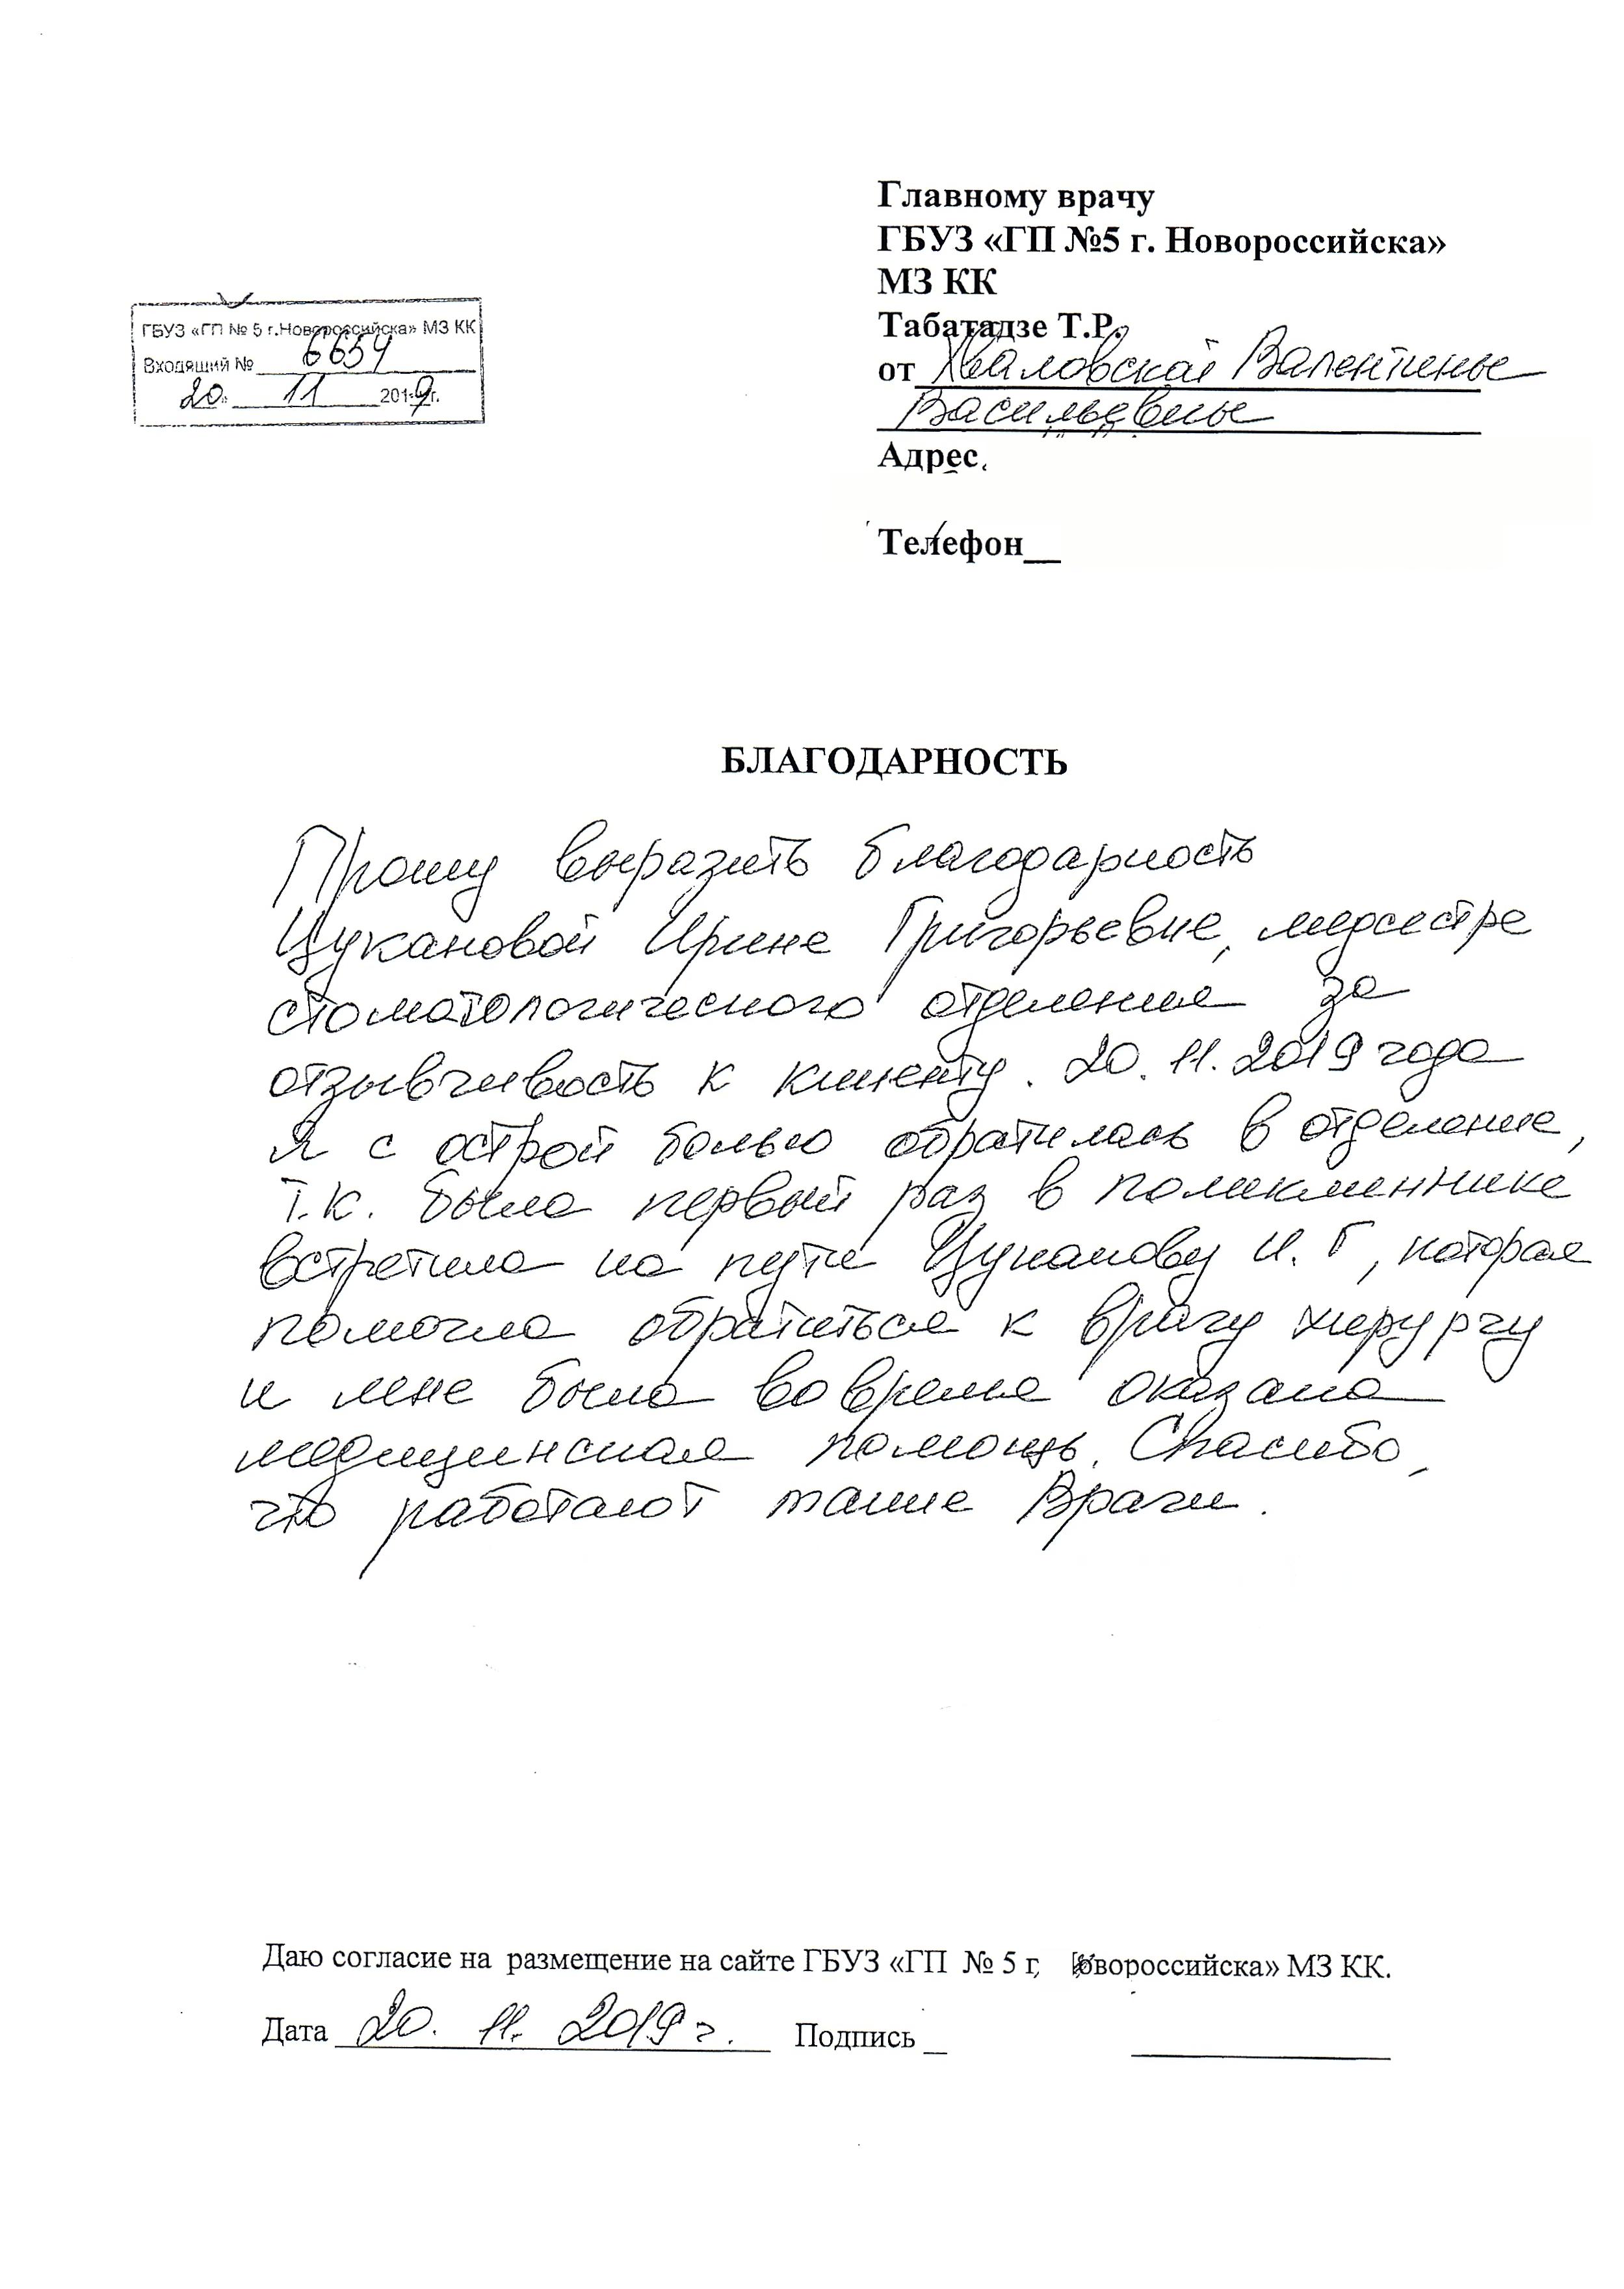 Главному врачу
ГБУЗ «ГП №5 г. Новороссийска»
МЗ КК
Табатадзе Т.Р.
от Валентины
Васильевны
Адрес.
Телефон__
ГБУЗ «ГП № 5 г.Новороссийска» МЗ КК
Входящий № 6659
20. 11 2019г.
БЛАГОДАРНОСТЬ
Прошу выразить благодарность
Цукановой Ирине Григорьевне, медсестре
стоматологического отделения за
отзывчивость к клиенту. 20.11.2019 года
Я с острой болью обратилась в отделение,
т.к. была первый раз в поликлиннике
встретила на пути Цуканову И.Г, которая
помогла обратиться к врачу хирургу
и мне была во время оказана
медицинская помощь. Спасибо,
что работают такие Врачи.
Даю согласие на размещение на сайте ГБУЗ «ГП № 5 г, Новороссийска» МЗ КК.
Дата 20. 11. 2019 г. Подпись _